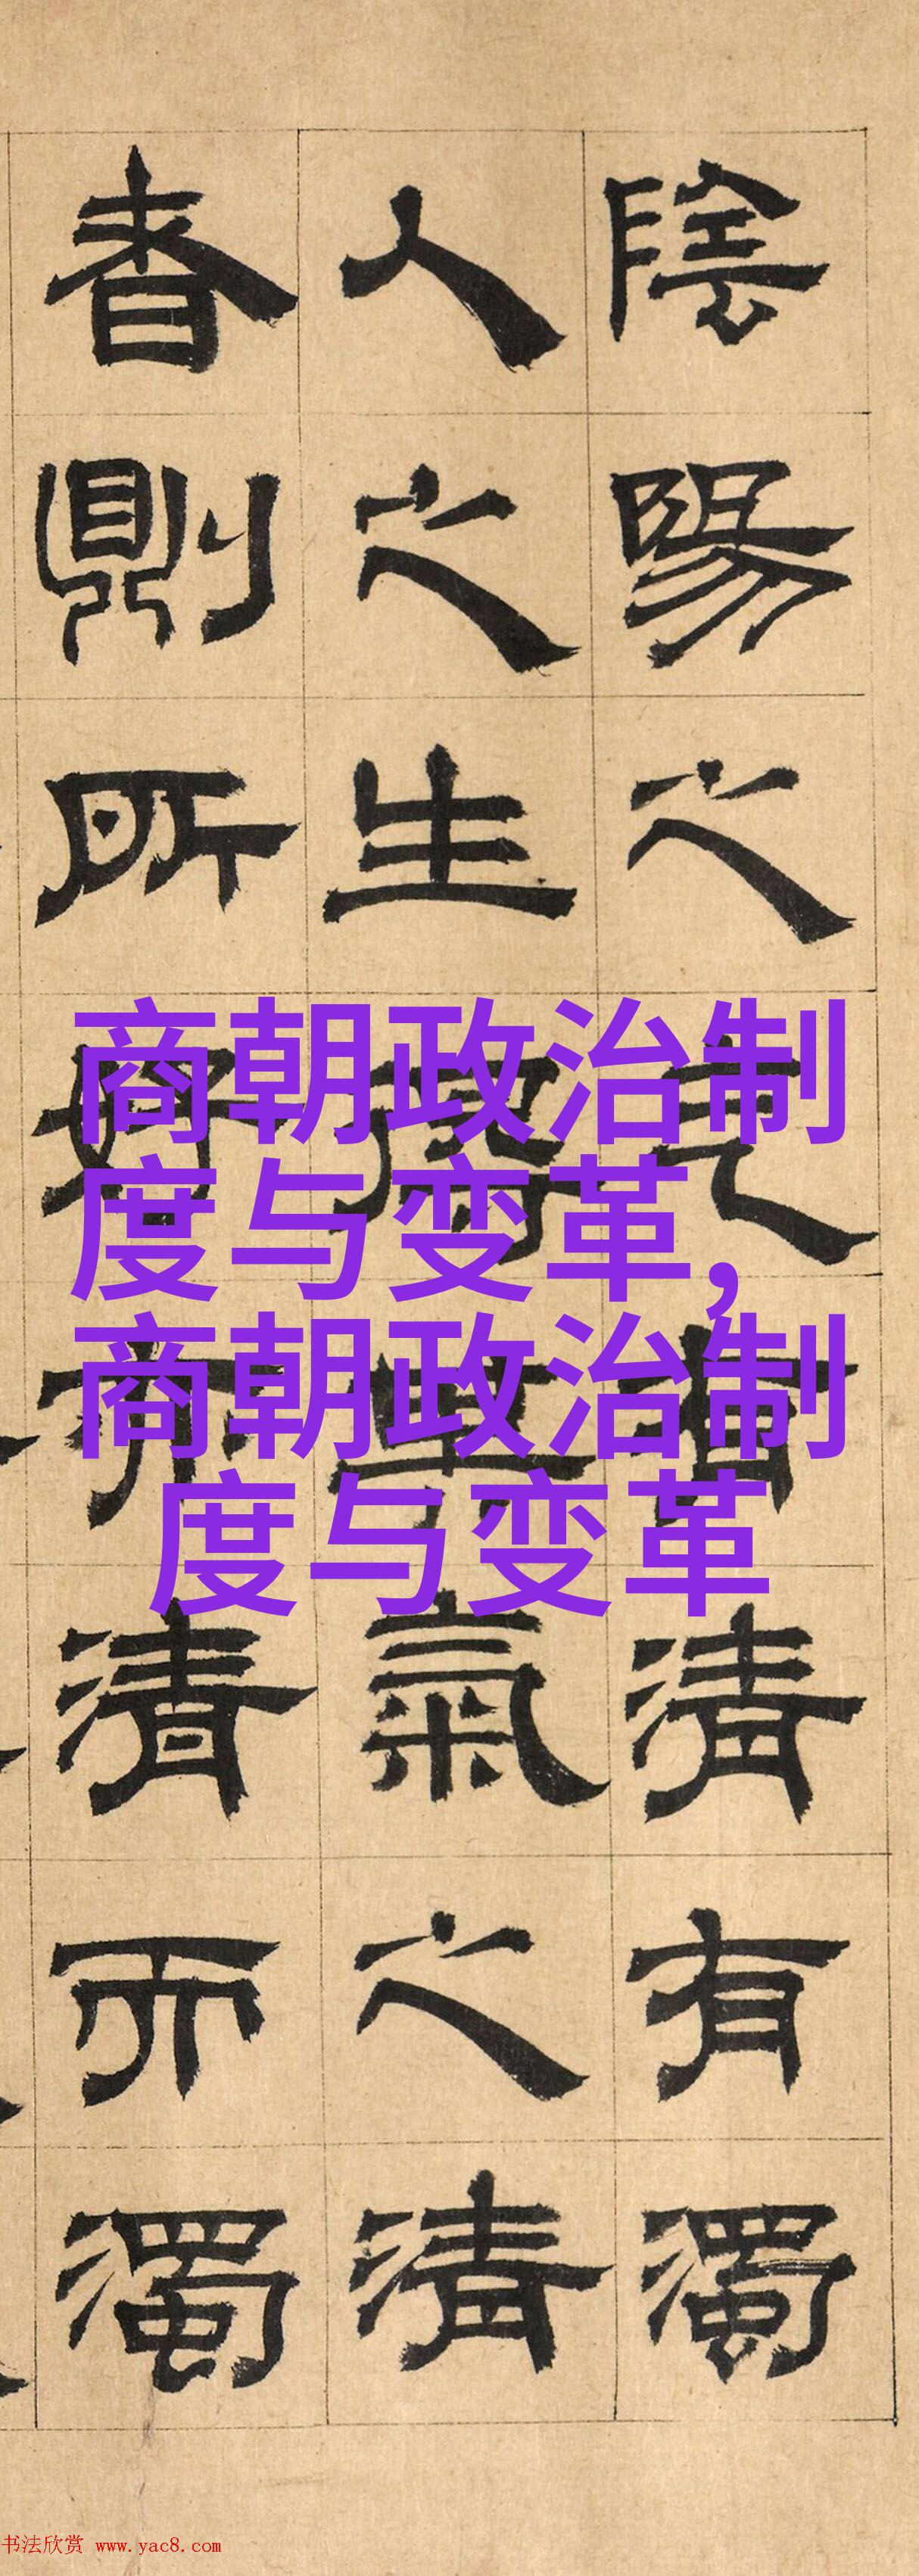 陰陽之气有清有濁
人之生得氣之清
者則所好亦清而濁
商朝政治制
度与变革,
商朝政治制
度与变革
书法欣赏 www.yac8.com